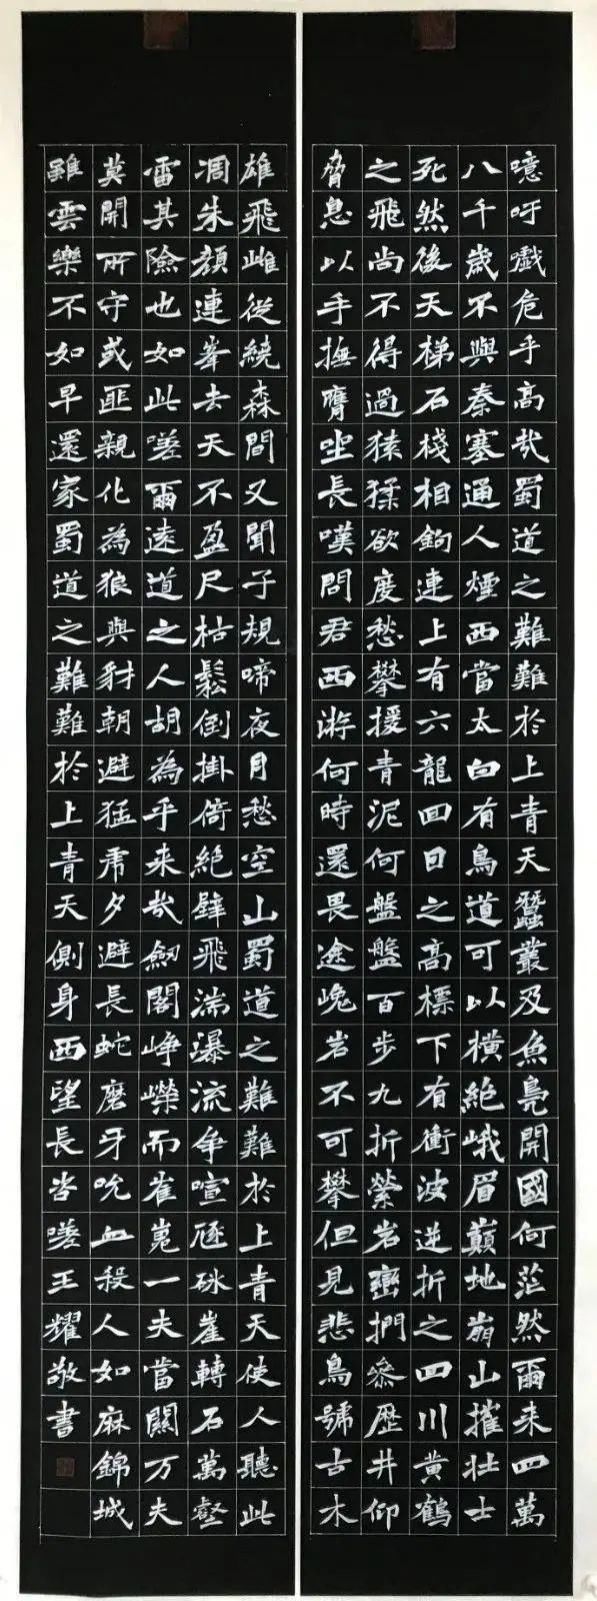 噫吁嚱危乎高哉蜀道之難難於上青天蠶叢及魚鳧開國何茫然爾来四萬
八千歲不與秦塞通人煙西當太白有鳥道可以橫絕峨眉巔地崩山摧壯士
死然後天梯石棧相鉤連上有六龍回日之高標下有衝波逆折之四川黃鶴
之飛尚不得過猿猱欲度愁攀援青泥何盤盤百步九折縈岩巒捫參歷井仰
脅息以手撫膺坐長嘆問君西游何時還畏途巉岩不可攀但見悲鳥號古木
雄飛雌從繞森間又聞子規啼夜月愁空山蜀道之難難於上青天使人聽此
凋朱顏連峯去天不盈尺枯鬆倒掛倚絕壁飛湍瀑流争喧豗砯崖轉石萬壑
雷其險也如此嗟爾遠道之人胡為乎来哉劍閣崢嶸而崔嵬一夫當關万夫
莫開所守或匪親化為狼與豺朝避猛虎夕避長蛇磨牙吮血殺人如麻錦城
雖雲樂不如早還家蜀道之難難於上青天側身西望長咨嗟王耀敬書